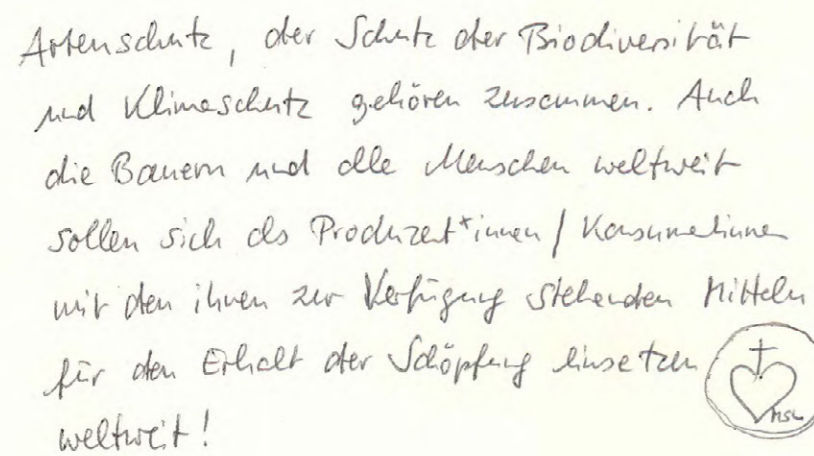 Artenschutz, der Schutz der Biodiversität
und Klimaschutz gehören zusammen. Auch
die Bauern und alle Menschen weltweit
sollen sich als Produzent*innen / Konsumentinnen
mit den ihnen zur Verfügung stehenden Mitteln
für den Erhalt der Schöpfung einsetzen
weltweit!